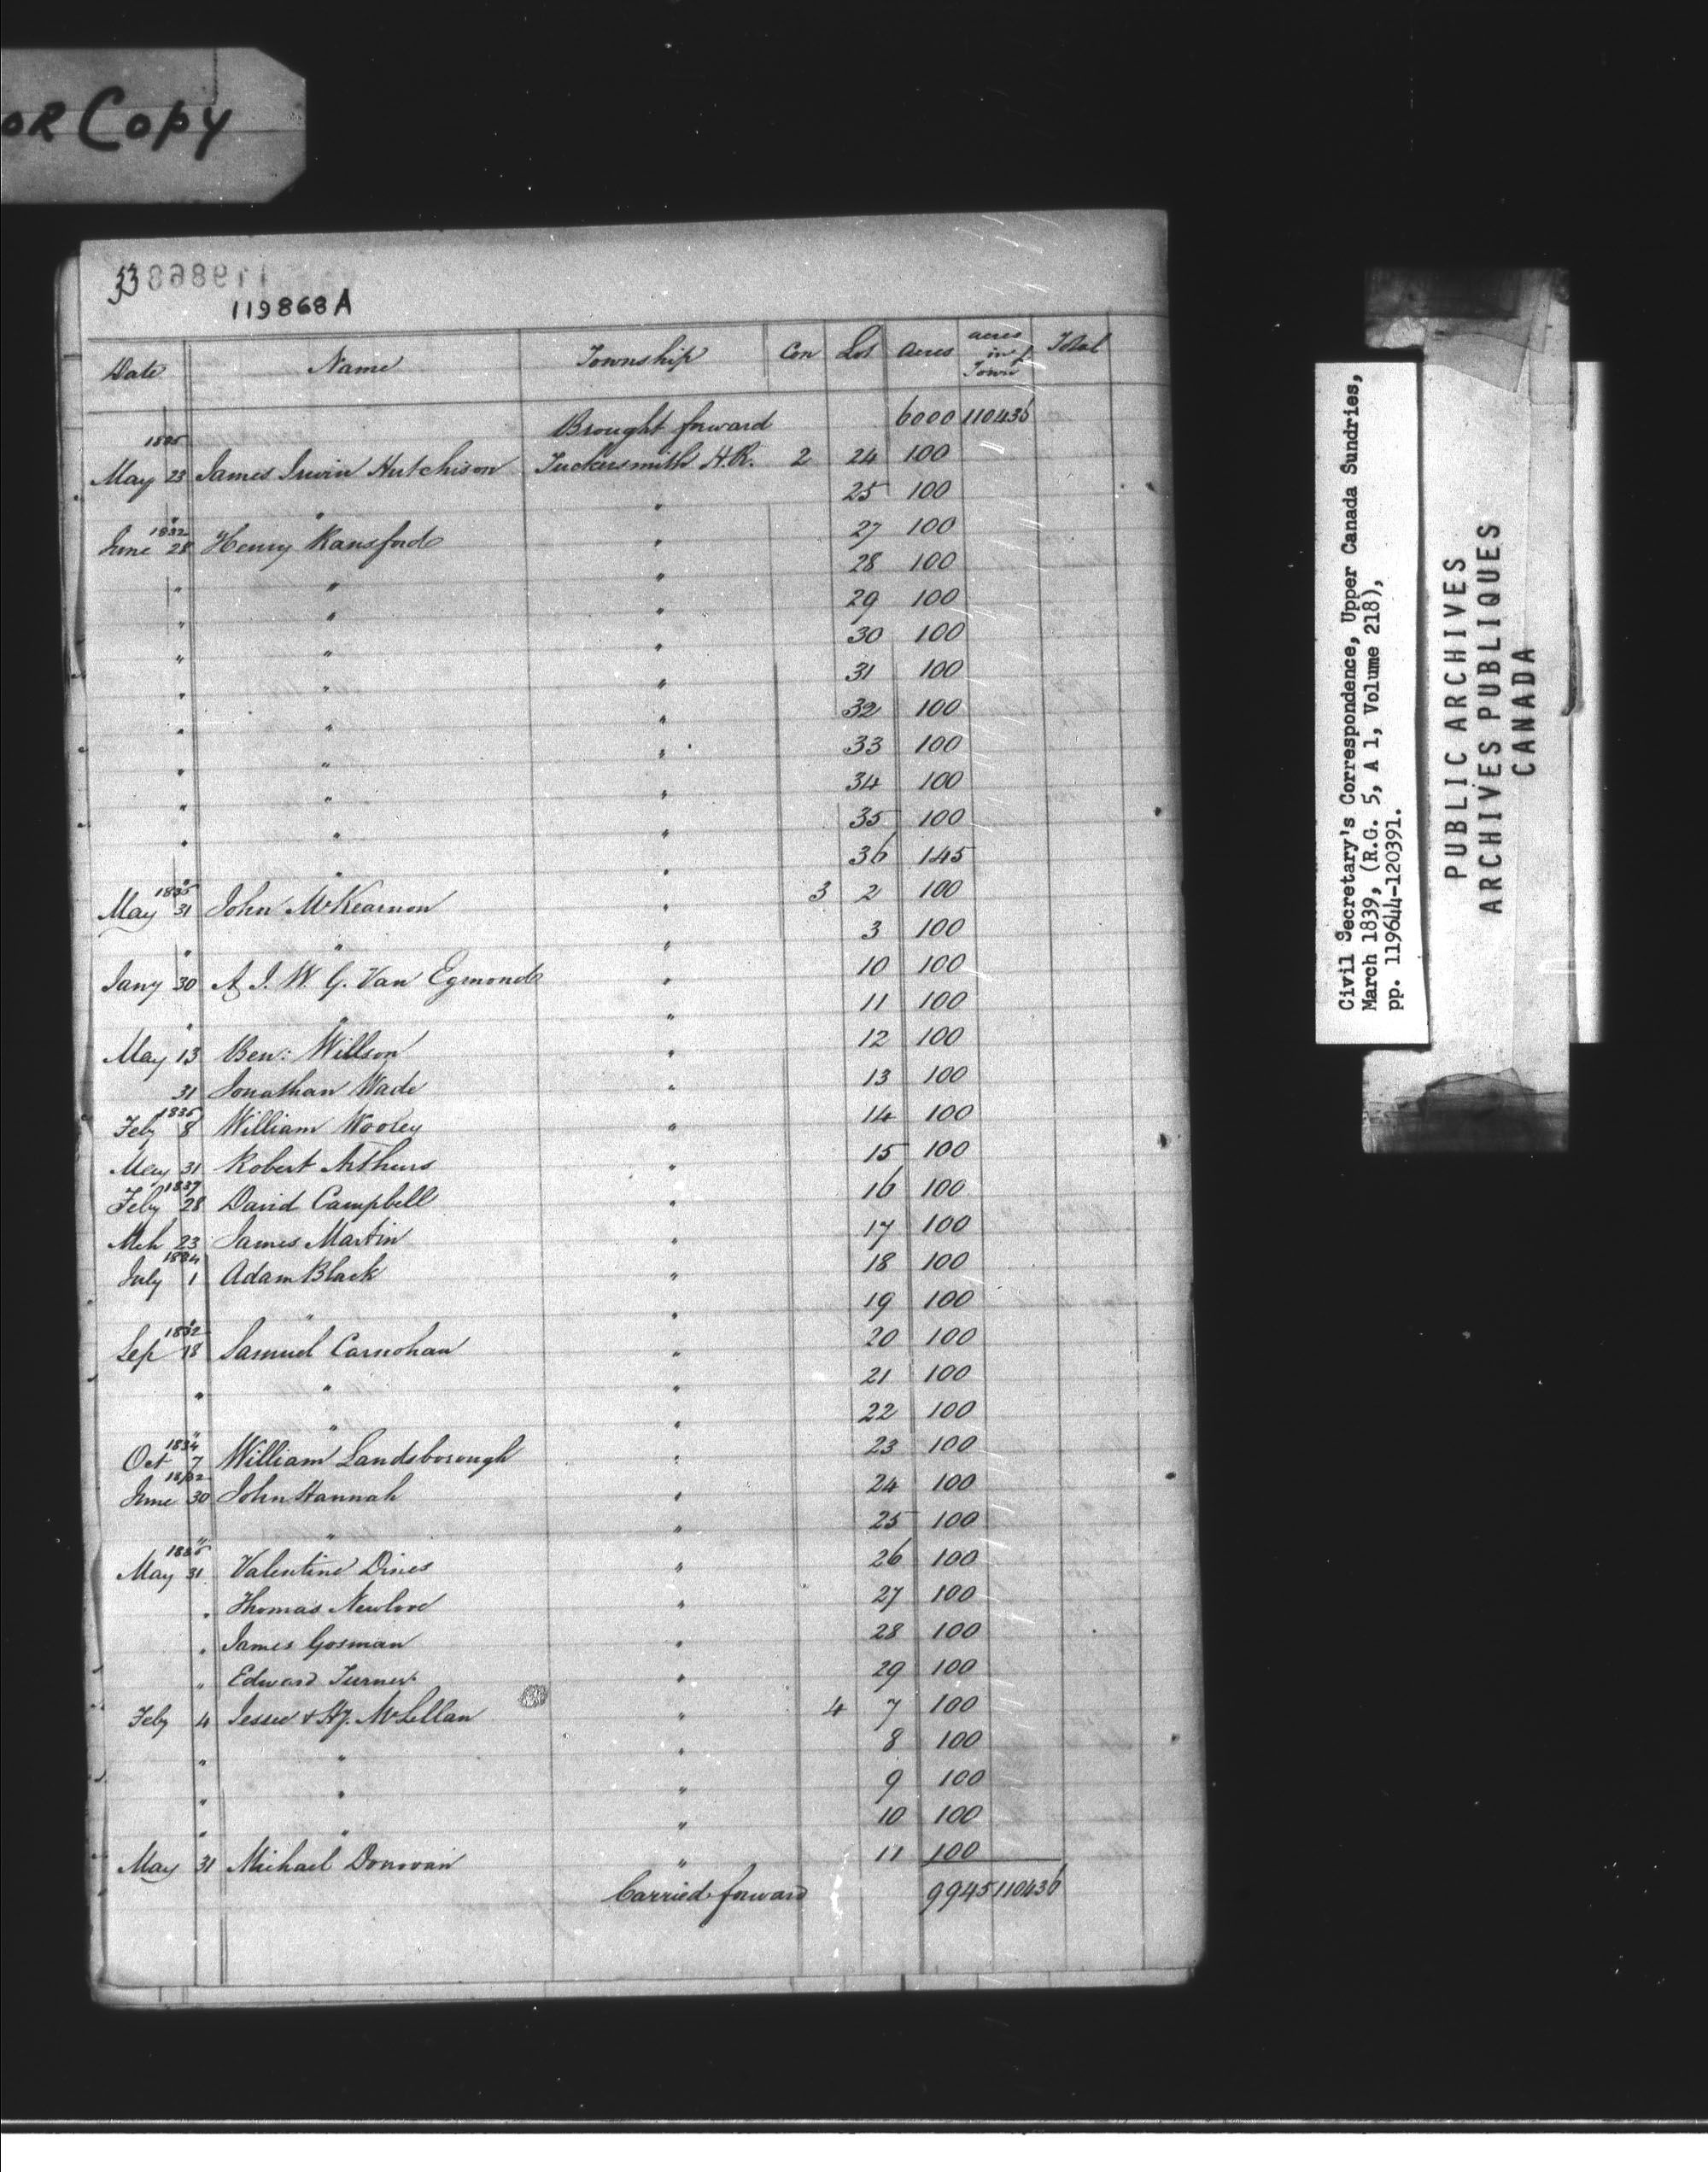 OR Copy
33
119868
119868 A
Date Name Township Con Lot Acres acres in Town Total
Brought forward 6000 110436
1835
May 23 James Irwin Hutchison Tuckersmith H.R. 2 24 100
" " " 25 100
1832
June 28 Henry Ransford " 27 100
" " " 28 100
" " " 29 100
" " " 30 100
" " " 31 100
" " " 32 100
" " " 33 100
" " " 34 100
" " " 35 100
" " " 36 145
1835
May 31 John McKearnon " 3 2 100
" " " 3 100
Jany 30 A. J. W. G. Van Egmond " 10 100
" " " 11 100
May 13 Ben: Willson " 12 100
31 Jonathan Wade " 13 100
1836
Feby 8 William Woolley " 14 100
May 31 Robert Arthurs " 15 100
1837
Feby 28 David Campbell " 16 100
Mch 23 James Martin " 17 100
1834
July 1 Adam Black " 18 100
" " " 19 100
1832
Sep 18 Samuel Carnohan " 20 100
" " " 21 100
" " " 22 100
1834
Oct 7 William Landsborough " 23 100
1832
June 30 John Hannah " 24 100
" " " 25 100
1835
May 31 Valentine Dines " 26 100
" Thomas Newlove " 27 100
" James Gosman " 28 100
" Edward Turner " 29 100
Feby 4 Jessie & Hy. McLellan " 4 7 100
" " " 8 100
" " " 9 100
" " " 10 100
May 31 Michael Donovan " 11 100
Carried forward 9945 110436
Civil Secretary's Correspondence, Upper Canada Sundries,
March 1839, (R.G. 5, A 1, Volume 218),
pp. 119644-120391.
PUBLIC ARCHIVES
ARCHIVES PUBLIQUES
CANADA